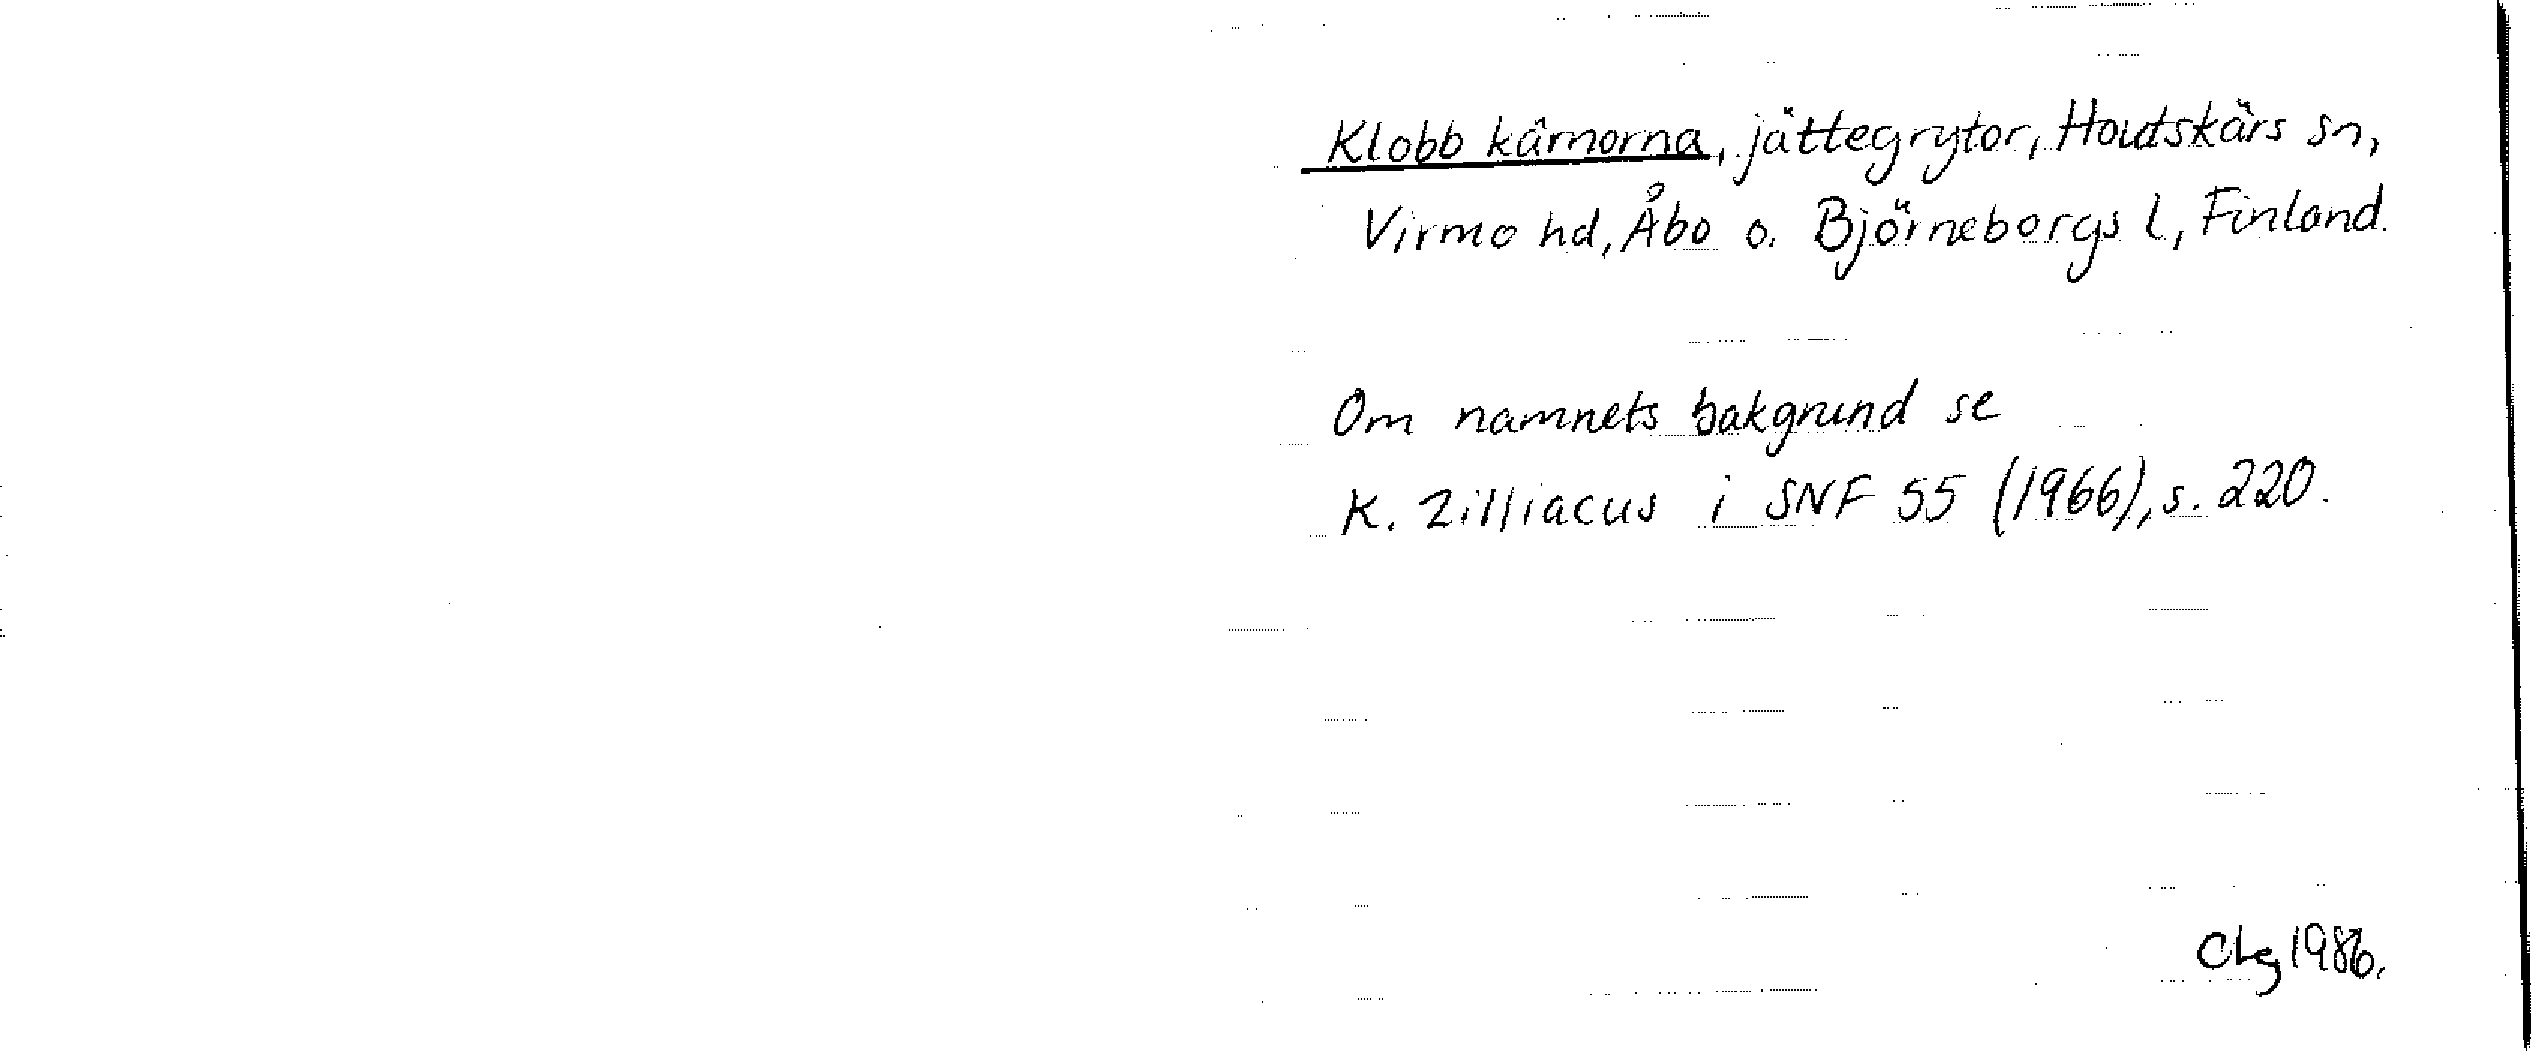 Klobb kärnorna, jättegrytor, Houtskärs sn,
Virmo hd, Åbo o. Björneborgs l, Finland.
Om namnets bakgrund se
K. Zilliacus i SNF 55 (1966), s. 220.
1986.